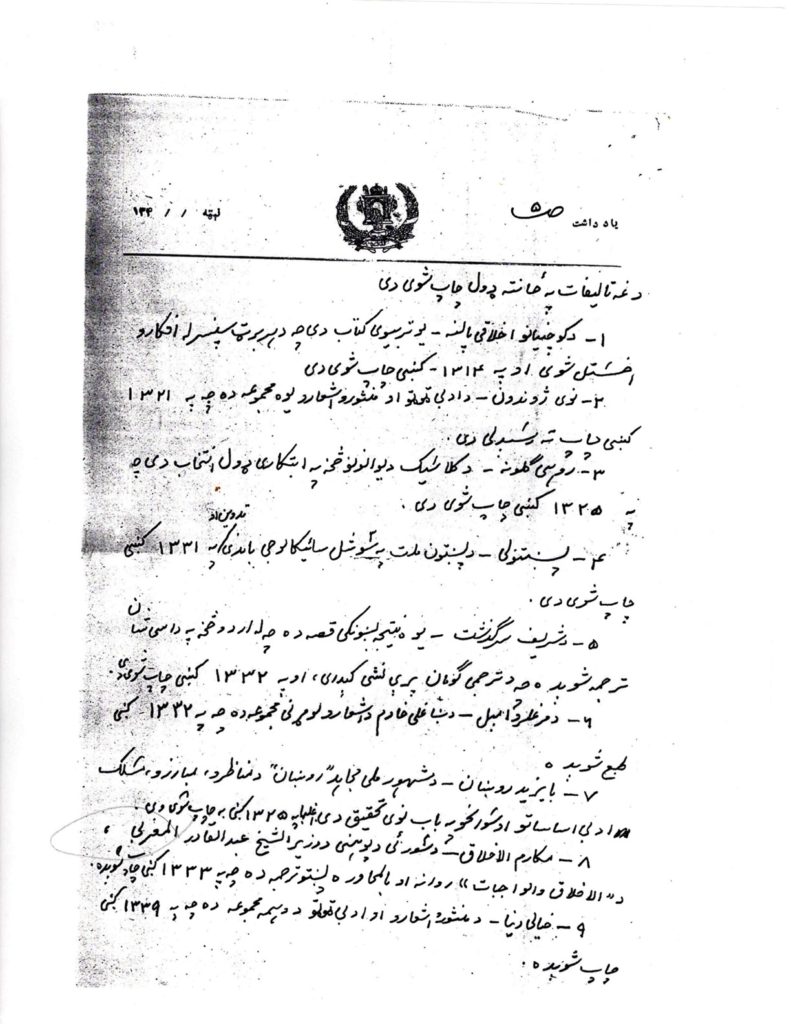 یاد داشت ص ۵
نېټه / / ۱۳۴
دغه تالیفات په ځانته ډول چاپ شوی دی
۱- د کوچنیانو اخلاقی پالنه - یو تربیوی کتاب دی چه د هربرټ سپنسر له افکارو
اخستل شوی او په ۱۳۱۴- کښی چاپ شوی دی
۲- نوی ژوندون - د ادبی ټوټو او منثورو اشعارو یوه مجموعه ده چه په ۱۳۲۱
کښی چاپ ته رسېدلی دی .
۳- روهی گلونه - د کلاسیک دیوانونو څخه په ابتکاری ډول انتخاب دی چه
په ۱۳۲۵ کښی چاپ شوی دی .
تدوین او
۴- پښتنولی - د پښتون ملت په سوشل سائیکالوجی باندی په ۱۳۳۱ کښی
چاپ شوی دی .
۵- د شریف سرگذشت - یوه نتیجه بښونکی قصه ده چه له اردو څخه په داسی شان
ترجمه شویده چه د ترجمی گومان پری نشی کېدای، او په ۱۳۳۲ کښی چاپ شوی ده.
۶- د مرغلرو امیل - د ښاغلی خادم د اشعارو لومړنی مجموعه ده چه په ۱۳۳۲ کښی
طبع شویده
۷- بایزید روښان - د مشهور ملی مجاهد "روښان" د مناظرو، مبارزو، مسلک
ادبی اساساتو او شوالخور باب نوی تحقیق دی په ۱۳۲۵ کښی چاپ شوی دی.
۸- مکارم الاخلاق - د پوهنی د وزیر الشیخ عبدالقادر المغربی،
د "الاخلاق والواجبات" روانه او بامحاوره پښتو ترجمه ده چه په ۱۳۳۳ کښی چاپ شویده.
۹- خیالی دنیا - د منثورو اشعارو او ادبی ټوټو دوهمه مجموعه ده چه په ۱۳۳۹ کښی
چاپ شویده .